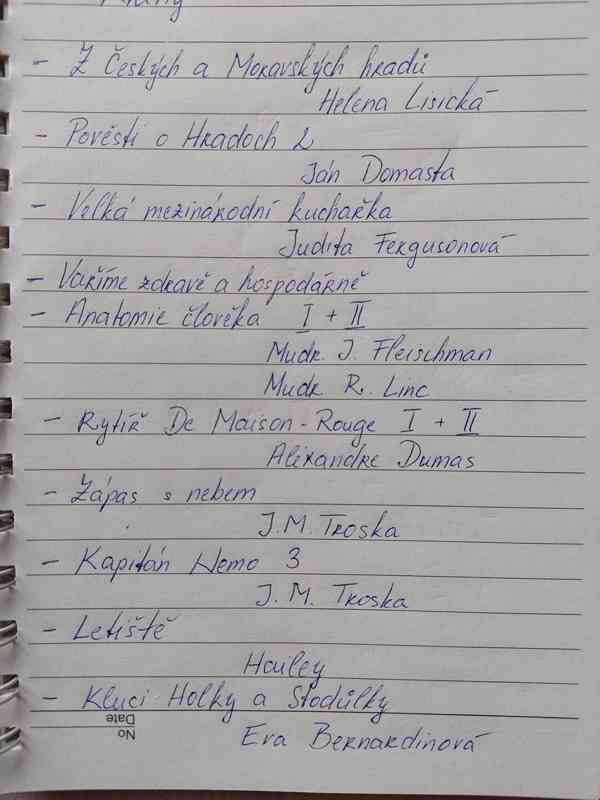 - Z Českých a Moravských hradů
Helena Lisická
- Pověsti o Hradoch 2
Ján Domasta
- Velká mezinárodní kuchařka
Judita Fergusonová
- Vaříme zdravě a hospodárně
- Anatomie člověka I + II
Mudr. J. Fleischman
Mudr. R. Linc
- Rytíř De Maison-Rouge I + II
Alexandre Dumas
- Zápas s nebem
J.M. Troska
- Kapitán Nemo 3
J.M. Troska
- Letiště
Hailey
- Kluci Holky a Stodůlky
Eva Bernardinová
No
Date